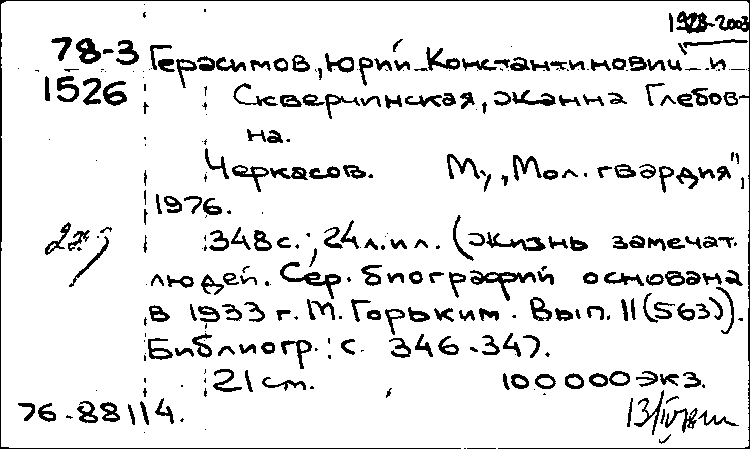 1928-2003
78-3 Герасимов, Юрий Константинович и
1526 Скверчинская, Жанна Глебов-
на.
Черкасов. М., „Мол. гвардия",
1976.
348 с.; 24 л. ил. (Жизнь замечат.
людей. Сер. биографий основана
в 1933 г. М. Горьким. Вып. 11 (563)).
Библиогр.: с. 346-347.
21 см. 100 000 экз.
76-88114.